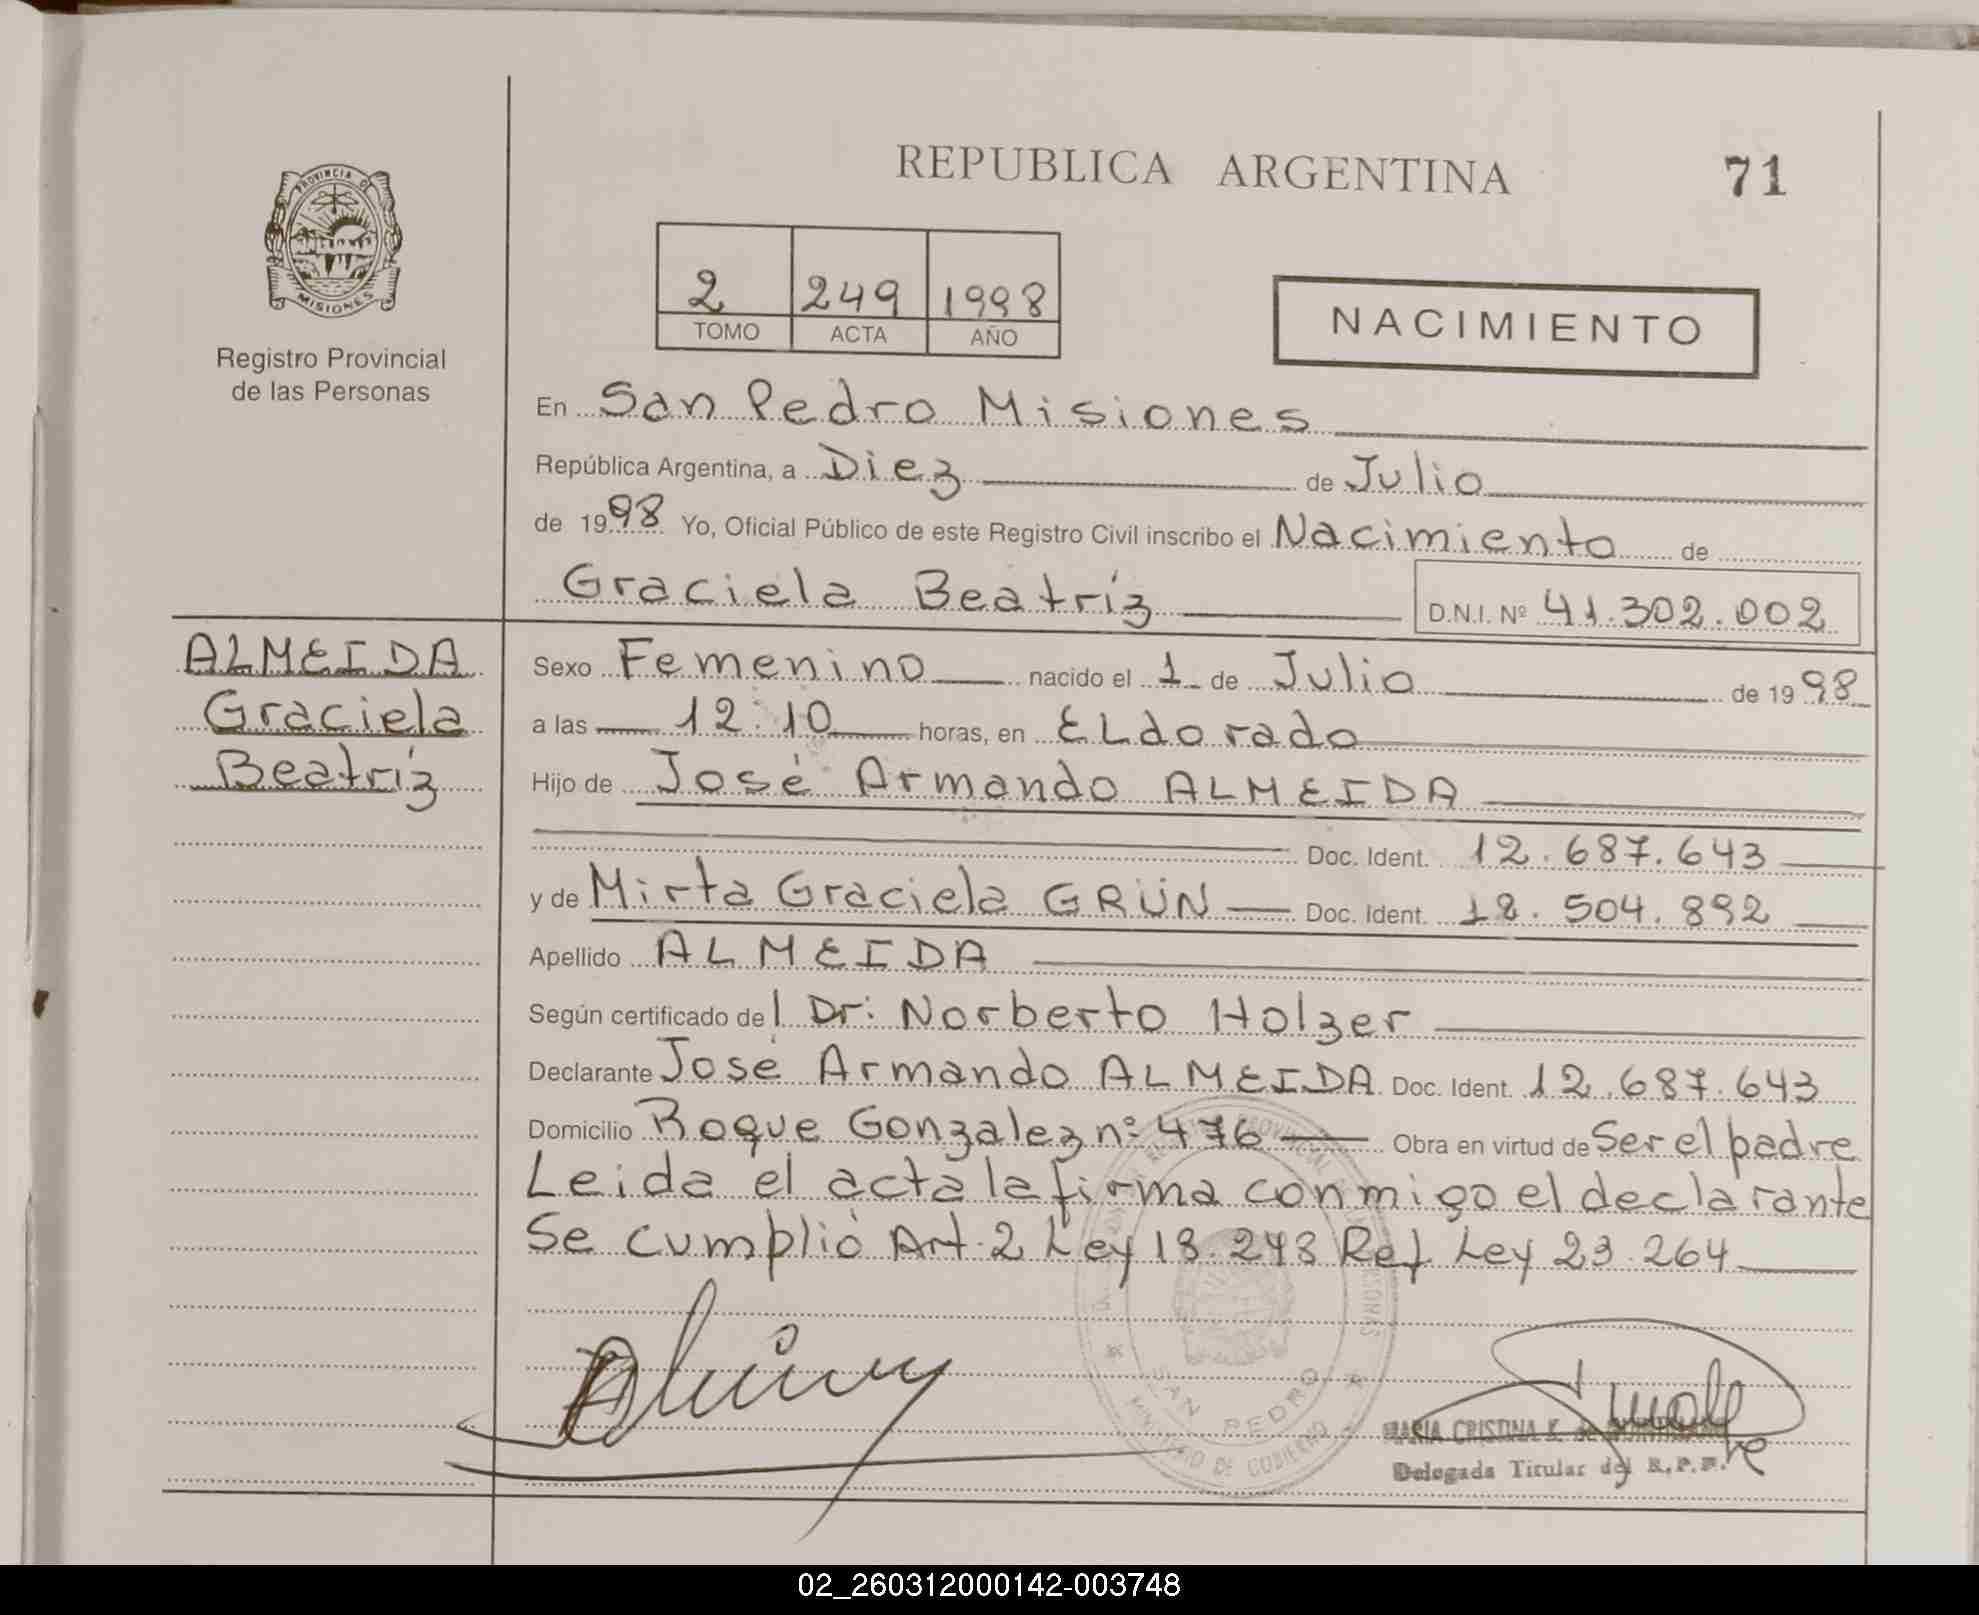 REPUBLICA ARGENTINA
71
PROVINCIA DE
MISIONES
Registro Provincial
de las Personas
2 249 1998
TOMO ACTA AÑO
NACIMIENTO
En San Pedro Misiones
República Argentina, a Diez de Julio
de 1998 Yo, Oficial Público de este Registro Civil inscribo el Nacimiento de
Graciela Beatríz D.N.I. Nº 41.302.002
ALMEIDA
Graciela
Beatríz
Sexo Femenino nacido el 1 de Julio de 1998
a las 12:10 horas, en ELdorado
Hijo de José Armando ALMEIDA
Doc. Ident. 12.687.643
y de Mirta Graciela GRÜN Doc. Ident. 18.504.892
Apellido ALMEIDA
Según certificado del Dr: Norberto Holzer
Declarante José Armando ALMEIDA Doc. Ident. 12.687.643
Domicilio Roque Gonzalez nº 476 Obra en virtud de Ser el padre
Leida el acta la firma conmigo el declarante
Se cumplió Art. 2 Ley 18.248 Ref Ley 23.264
SAN PEDRO
MINISTERIO DE GOBIERNO
MARIA CRISTINA K. de
Delegada Titular del R.P.P.
02_260312000142-003748